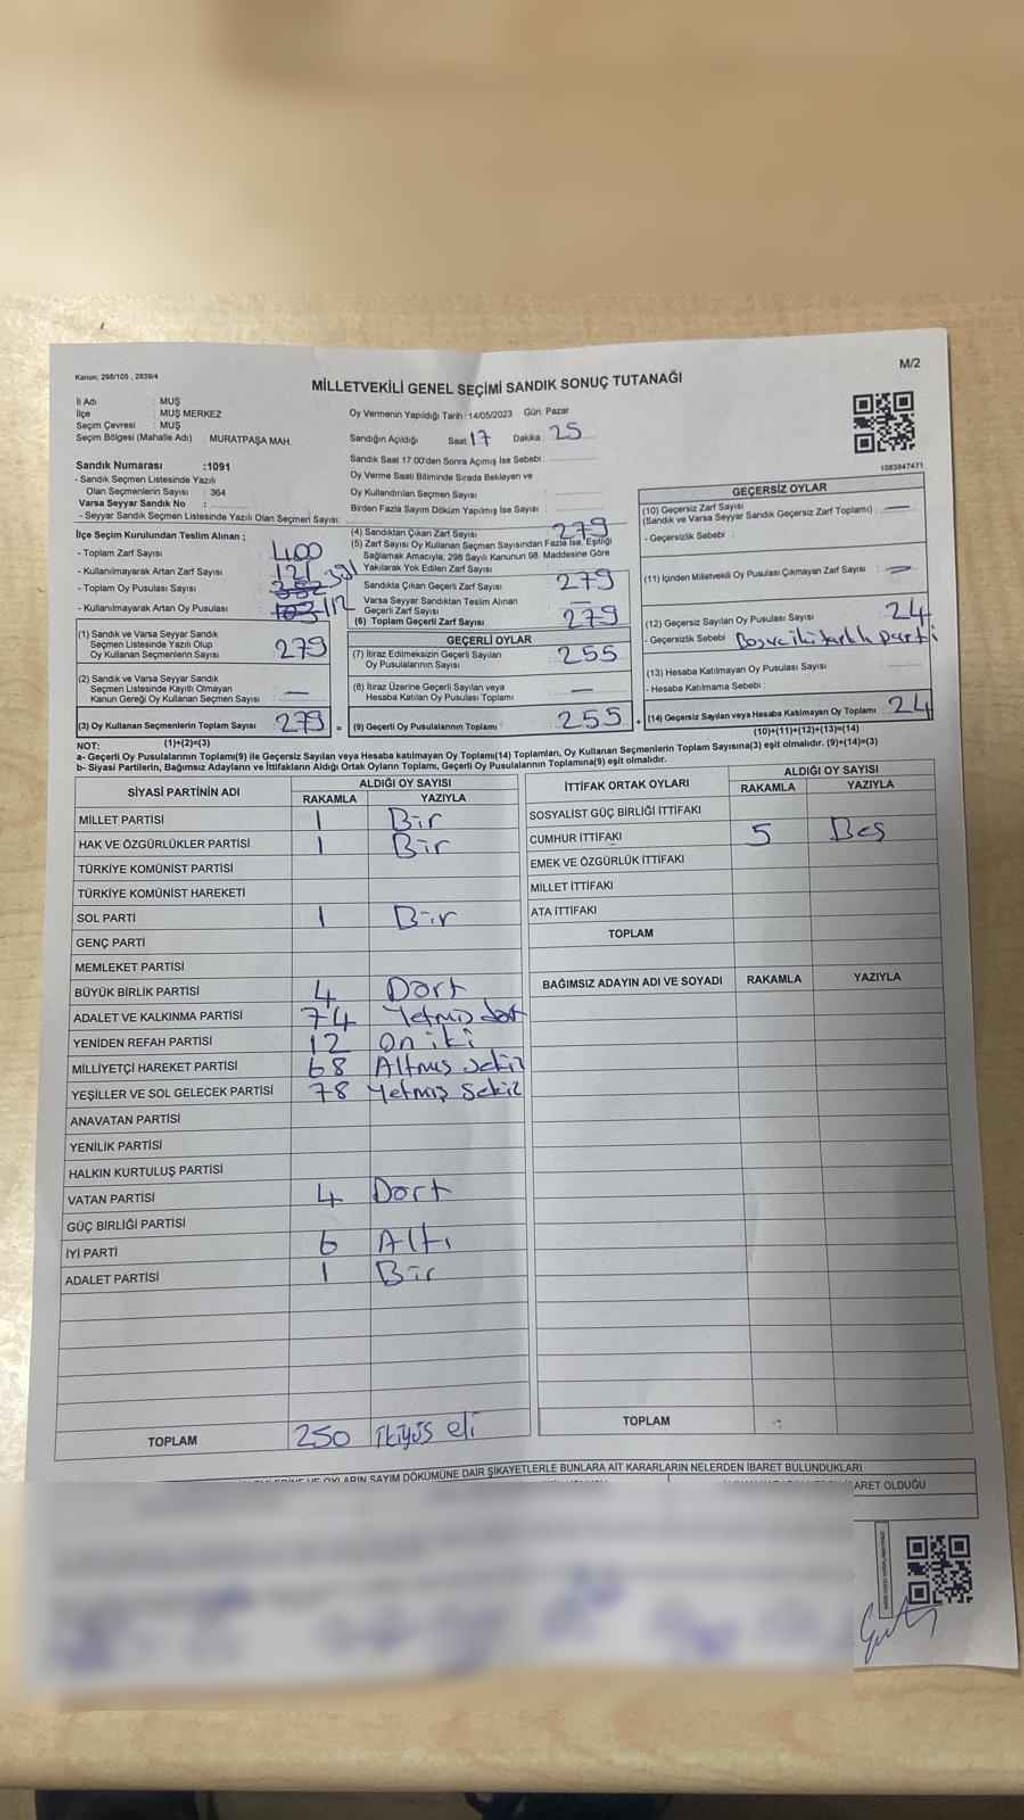 Kanun: 298/105, 2839/4
M/2
MİLLETVEKİLİ GENEL SEÇİMİ SANDIK SONUÇ TUTANAĞI
İl Adı MUŞ
İlçe MUŞ MERKEZ
Seçim Çevresi MUŞ
Seçim Bölgesi (Mahalle Adı) MURATPAŞA MAH.
Sandık Numarası :1091
- Sandık Seçmen Listesinde Yazılı
Olan Seçmenlerin Sayısı : 364
Varsa Seyyar Sandık No :
- Seyyar Sandık Seçmen Listesinde Yazılı Olan Seçmen Sayısı
Oy Vermenin Yapıldığı Tarih :14/05/2023 Gün: Pazar
Sandığın Açıldığı Saat 17 Dakika 25
Sandık Saat 17.00'den Sonra Açmış İse Sebebi :
Oy Verme Saati Bitiminde Sırada Bekleyen ve
Oy Kullandırılan Seçmen Sayısı
Birden Fazla Sayım Döküm Yapılmış İse Sayısı :
1083847471
İlçe Seçim Kurulundan Teslim Alınan ;
- Toplam Zarf Sayısı 400
- Kullanılmayarak Artan Zarf Sayısı 121
- Toplam Oy Pusulası Sayısı 391
- Kullanılmayarak Artan Oy Pusulası 112
(1) Sandık ve Varsa Seyyar Sandık
Seçmen Listesinde Yazılı Olup
Oy Kullanan Seçmenlerin Sayısı 279
(2) Sandık ve Varsa Seyyar Sandık
Seçmen Listesinde Kayıtlı Olmayan
Kanun Gereği Oy Kullanan Seçmen Sayısı —
(3) Oy Kullanan Seçmenlerin Toplam Sayısı 279 =
(1)+(2)=(3)
(4) Sandıktan Çıkan Zarf Sayısı 279
(5) Zarf Sayısı Oy Kullanan Seçmen Sayısından Fazla İse, Eşitliği
Sağlamak Amacıyla, 298 Sayılı Kanunun 98. Maddesine Göre
Yakılarak Yok Edilen Zarf Sayısı
Sandıkta Çıkan Geçerli Zarf Sayısı 279
Varsa Seyyar Sandıktan Teslim Alınan
Geçerli Zarf Sayısı —
(6) Toplam Geçerli Zarf Sayısı 279
GEÇERLİ OYLAR
(7) İtiraz Edilmeksizin Geçerli Sayılan
Oy Pusulalarının Sayısı 255
(8) İtiraz Üzerine Geçerli Sayılan veya
Hesaba Katılan Oy Pusulası Toplamı —
(9) Geçerli Oy Pusulalarının Toplamı 255 +
GEÇERSİZ OYLAR
(10) Geçersiz Zarf Sayısı
(Sandık ve Varsa Seyyar Sandık Geçersiz Zarf Toplamı) —
- Geçersizlik Sebebi :
(11) İçinden Milletvekili Oy Pusulası Çıkmayan Zarf Sayısı —
(12) Geçersiz Sayılan Oy Pusulası Sayısı 24
- Geçersizlik Sebebi parti
(13) Hesaba Katılmayan Oy Pusulası Sayısı
- Hesaba Katılmama Sebebi :
(14) Geçersiz Sayılan veya Hesaba Katılmayan Oy Toplamı 24
(10)+(11)+(12)+(13)=(14)
NOT:
a- Geçerli Oy Pusulalarının Toplamı(9) ile Geçersiz Sayılan veya Hesaba katılmayan Oy Toplamı(14) Toplamları, Oy Kullanan Seçmenlerin Toplam Sayısına(3) eşit olmalıdır. (9)+(14)=(3)
b- Siyasi Partilerin, Bağımsız Adayların ve İttifakların Aldığı Ortak Oyların Toplamı, Geçerli Oy Pusulalarının Toplamına(9) eşit olmalıdır.
SİYASİ PARTİNİN ADI ALDIĞI OY SAYISI
RAKAMLA YAZIYLA
MİLLET PARTİSİ 1 Bir
HAK VE ÖZGÜRLÜKLER PARTİSİ 1 Bir
TÜRKİYE KOMÜNİST PARTİSİ
TÜRKİYE KOMÜNİST HAREKETİ
SOL PARTİ 1 Bir
GENÇ PARTİ
MEMLEKET PARTİSİ
BÜYÜK BİRLİK PARTİSİ 4 Dort
ADALET VE KALKINMA PARTİSİ 74 Yetmiş dört
YENİDEN REFAH PARTİSİ 12 On iki
MİLLİYETÇİ HAREKET PARTİSİ 68 Altmış sekiz
YEŞİLLER VE SOL GELECEK PARTİSİ 78 Yetmiş Sekiz
ANAVATAN PARTİSİ
YENİLİK PARTİSİ
HALKIN KURTULUŞ PARTİSİ
VATAN PARTİSİ 4 Dort
GÜÇ BİRLİĞİ PARTİSİ
İYİ PARTİ 6 Altı
ADALET PARTİSİ 1 Bir
TOPLAM 250 İkiyüs eli
İTTİFAK ORTAK OYLARI ALDIĞI OY SAYISI
RAKAMLA YAZIYLA
SOSYALİST GÜÇ BİRLİĞİ İTTİFAKI
CUMHUR İTTİFAKI 5 Beş
EMEK VE ÖZGÜRLÜK İTTİFAKI
MİLLET İTTİFAKI
ATA İTTİFAKI
TOPLAM
BAĞIMSIZ ADAYIN ADI VE SOYADI RAKAMLA YAZIYLA
TOPLAM
OYLARIN SAYIM DÖKÜMÜNE DAİR ŞİKAYETLERLE BUNLARA AİT KARARLARIN NELERDEN İBARET BULUNDUKLARI
ARET OLDUĞU